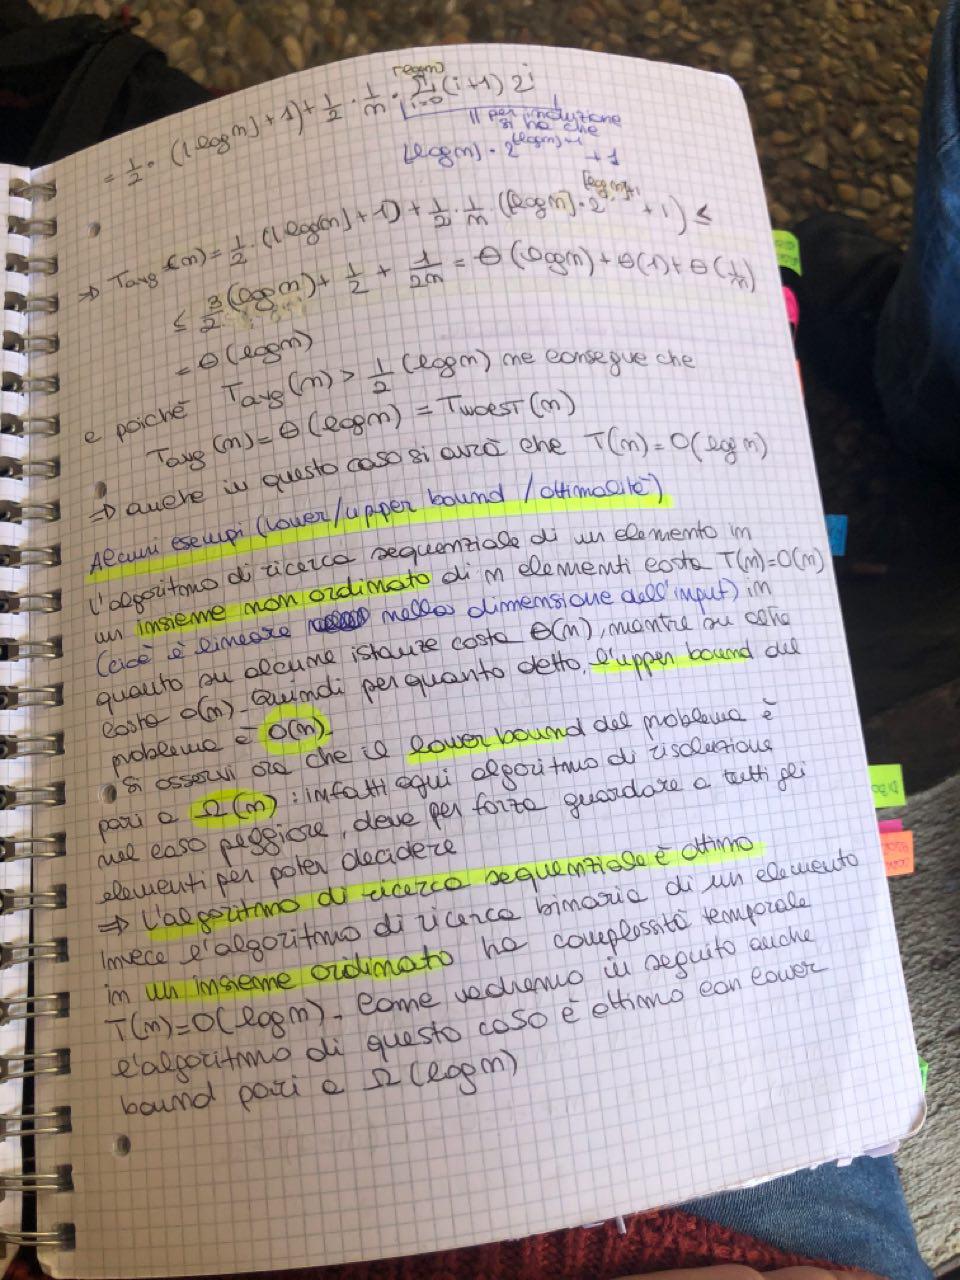 = 1/2 · (⌊log n⌋ + 1) + 1/2 · 1/n · ∑_{i=0}^{⌊log n⌋} (i+1) 2^i
|| per induzione
si ha che
⌊log n⌋ · 2^{⌊log n⌋+1} + 1
⇒ Tavg (n) = 1/2 · (⌊log n⌋ + 1) + 1/2 · 1/n · (⌊log n⌋ · 2^{⌊log n⌋+1} + 1) ≤
≤ 3/2 (log n) + 1/2 + 1/2n = θ (log n) + θ(1) + θ(1/n)
= θ (log n)
e poiché Tavg (n) > 1/2 (log n) ne consegue che
Tavg (n) = θ (log n) = Tworst (n)
⇒ anche in questo caso si avrà che T(n) = O(log n)
Alcuni esempi (lower/upper bound / ottimalità)
L'algoritmo di ricerca sequenziale di un elemento in
un insieme non ordinato di n elementi costa T(n)=O(n)
(cioè è lineare nella dimensione dell'input) in
quanto su alcune istanze costa θ(n), mentre su altre
costa o(n). Quindi per quanto detto, l'upper bound del
problema è O(n).
Si osservi ora che il lower bound del problema è
pari a Ω(n) : infatti ogni algoritmo di risoluzione
nel caso peggiore, deve per forza guardare a tutti gli
elementi per poter decidere
⇒ L'algoritmo di ricerca sequenziale è ottimo
Invece l'algoritmo di ricerca binaria di un elemento
in un insieme ordinato ha complessità temporale
T(n)=O(log n). Come vedremo in seguito anche
l'algoritmo di questo caso è ottimo con lower
bound pari a Ω (log n)